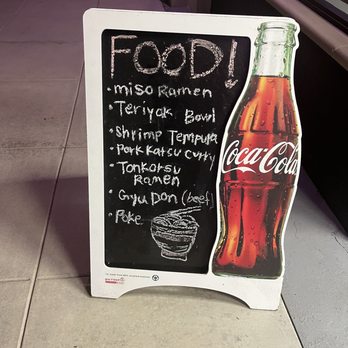 FOOD!
• miso Ramen
• Teriyak Bowl
• Shrimp Tempura
• Pork Katsu Curry
• Tonkotsu
Ramen
• Gyu Don (beef)
• Poke
Coca-Cola